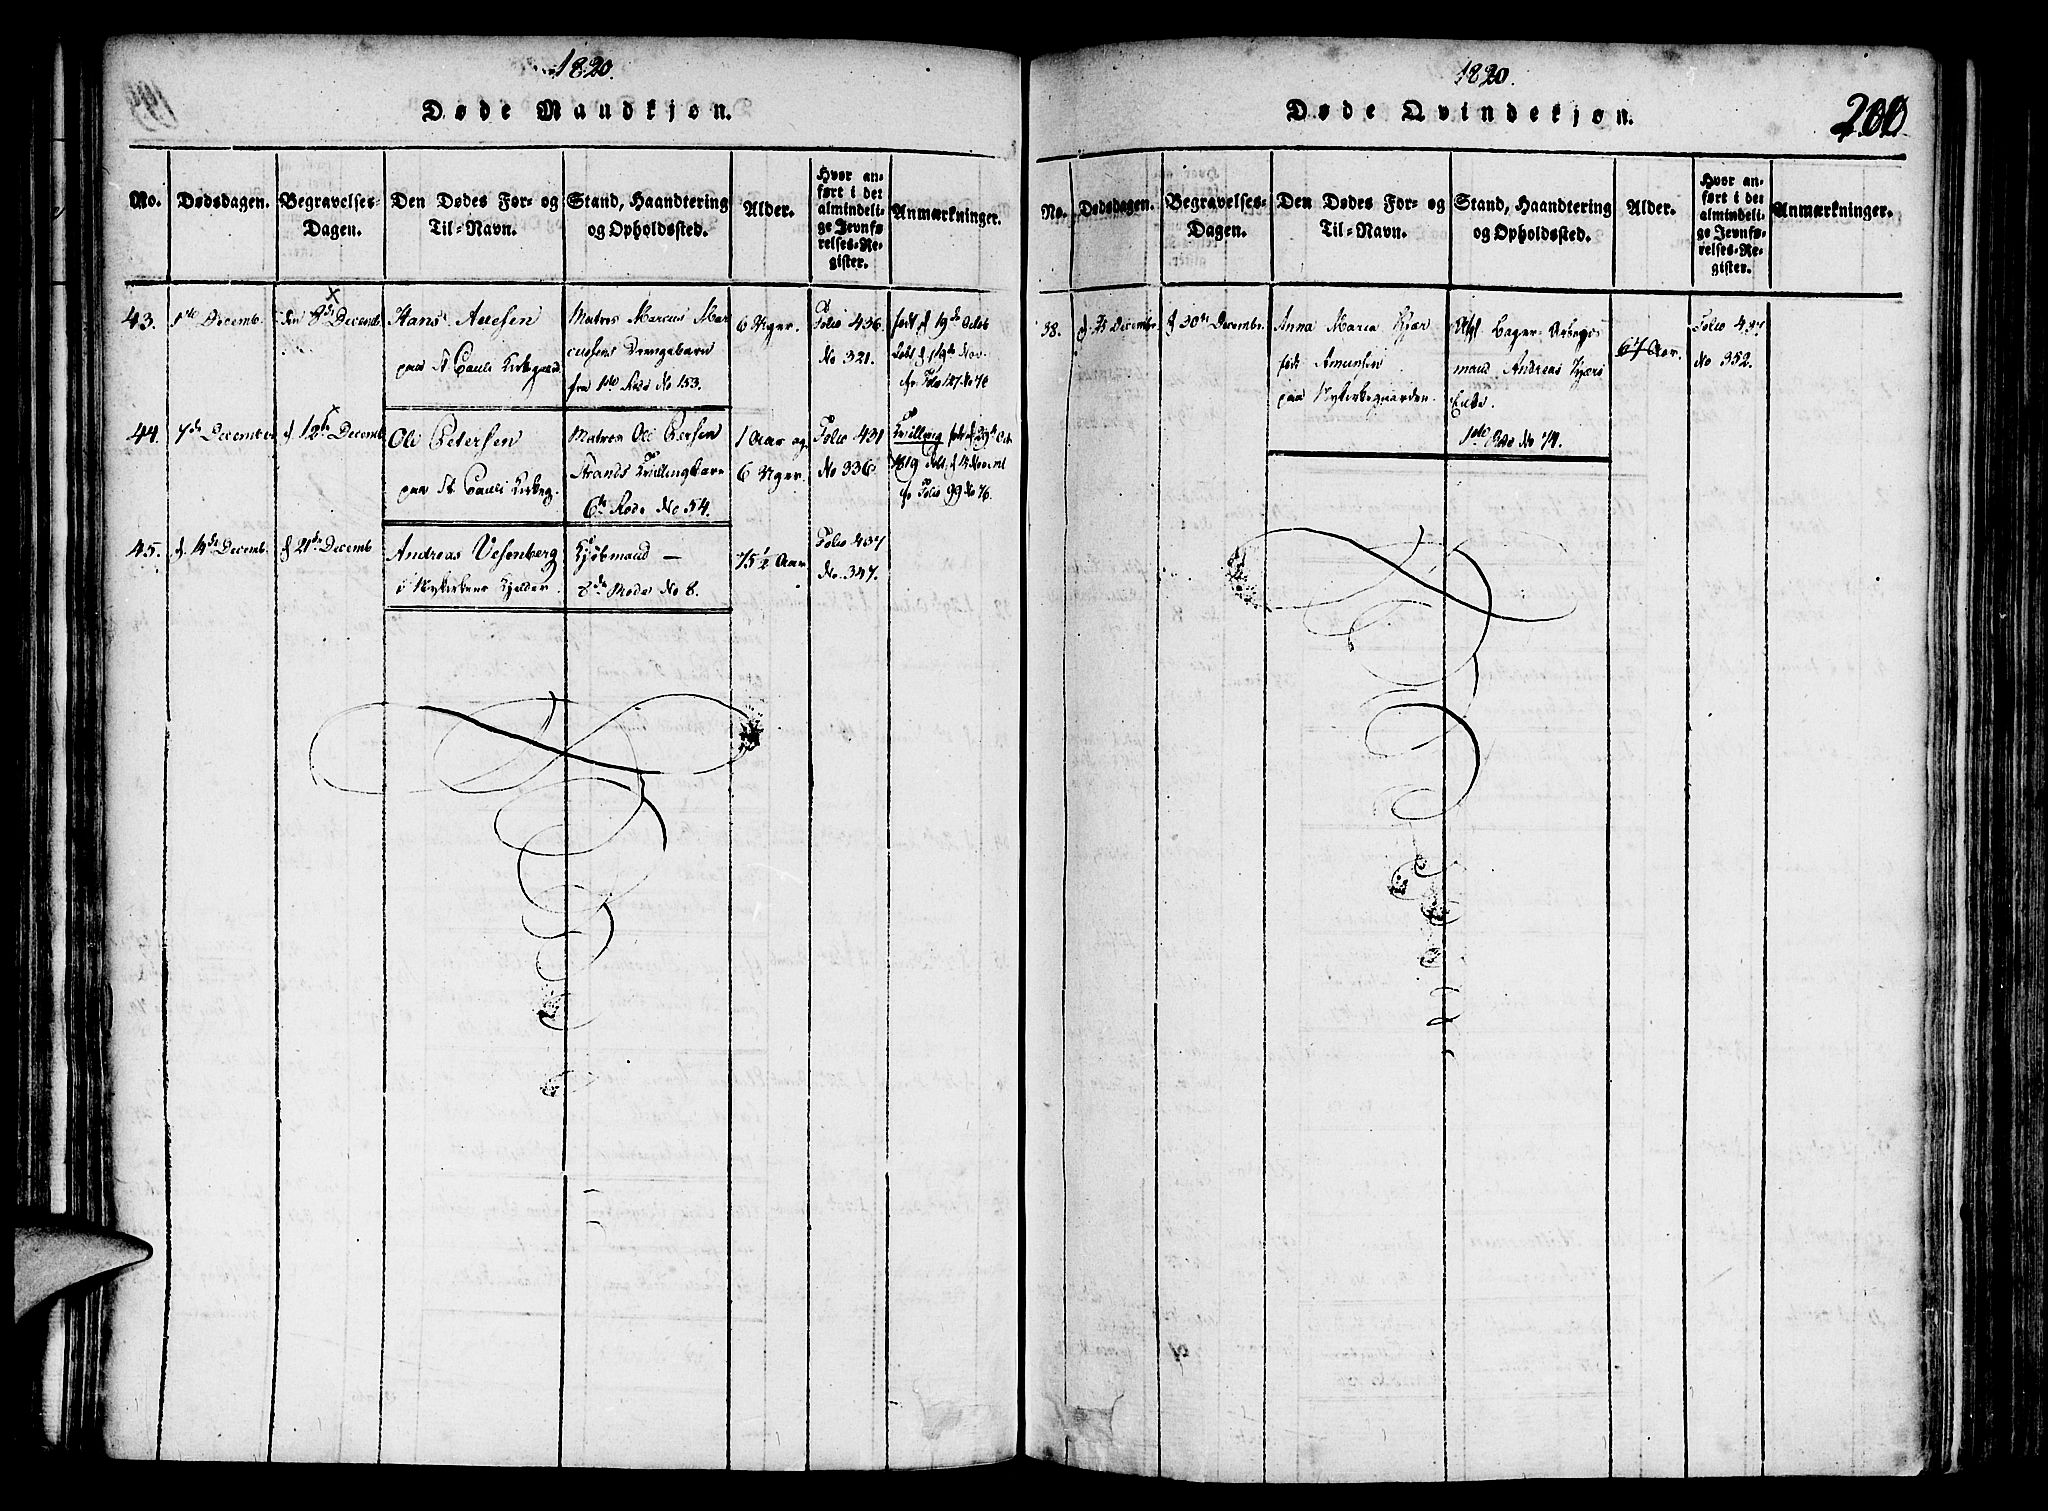 1820.
Døde Mandkjøn.
No.
Dødsdagen.
Begravelses-
Dagen.
Den Dødes For- og
Til-Navn.
Stand, Haandtering
og Opholdssted.
Alder.
Hvor an-
ført i det
almindeli-
ge Jevnfø-
relses-Re-
gister.
Anmærkninger.
43.
1ste Decemb.
den 8de Decemb
Hans
paa St Pauli Kirkegaard
Matros Marcus Mar
cussens Drengebarn
fra 1ste Rode No 153.
6 Uger.
Folio 436
No 321.
født d 19de Octob
døbt d 19de Nov.
Folio 127 No 76
44.
7de December
d 12te Decemb
Ole Petersen
paa St Pauli Kirkeg.
Matros Ole
Strands Tvillingbarn
6te Rode No 54.
1 Aar og
6 Uger.
Folio 431
No 336
Tvilling
1819
Folio 99 No 76.
45.
d. 14de Decemb.
d 21de Decemb
Andreas Vesenberg
i Nykirkens Kjelder.
Kjøbmand —
8de Rode No 8.
75 ½ Aar
Folio 437
No. 347.
1820.
Døde Qvindekjøn.
200
No.
Dødsdagen.
Begravelses-
Dagen.
Den Dødes For- og
Til-Navn.
Stand, Haandtering
og Opholdssted.
Alder.
Hvor an-
ført i det
almindeli-
ge Jevnfø-
relses-Re-
gister.
Anmærkninger.
38.
Decembr.
d 30te Decembr.
Anna Maria Kjær
født Amunsen
paa Nykirkegaarden.
Afg. Bager
mand Andreas Kjærs
Enke.
1ste Rode No 74.
67 Aar.
Folio 437
No 352.